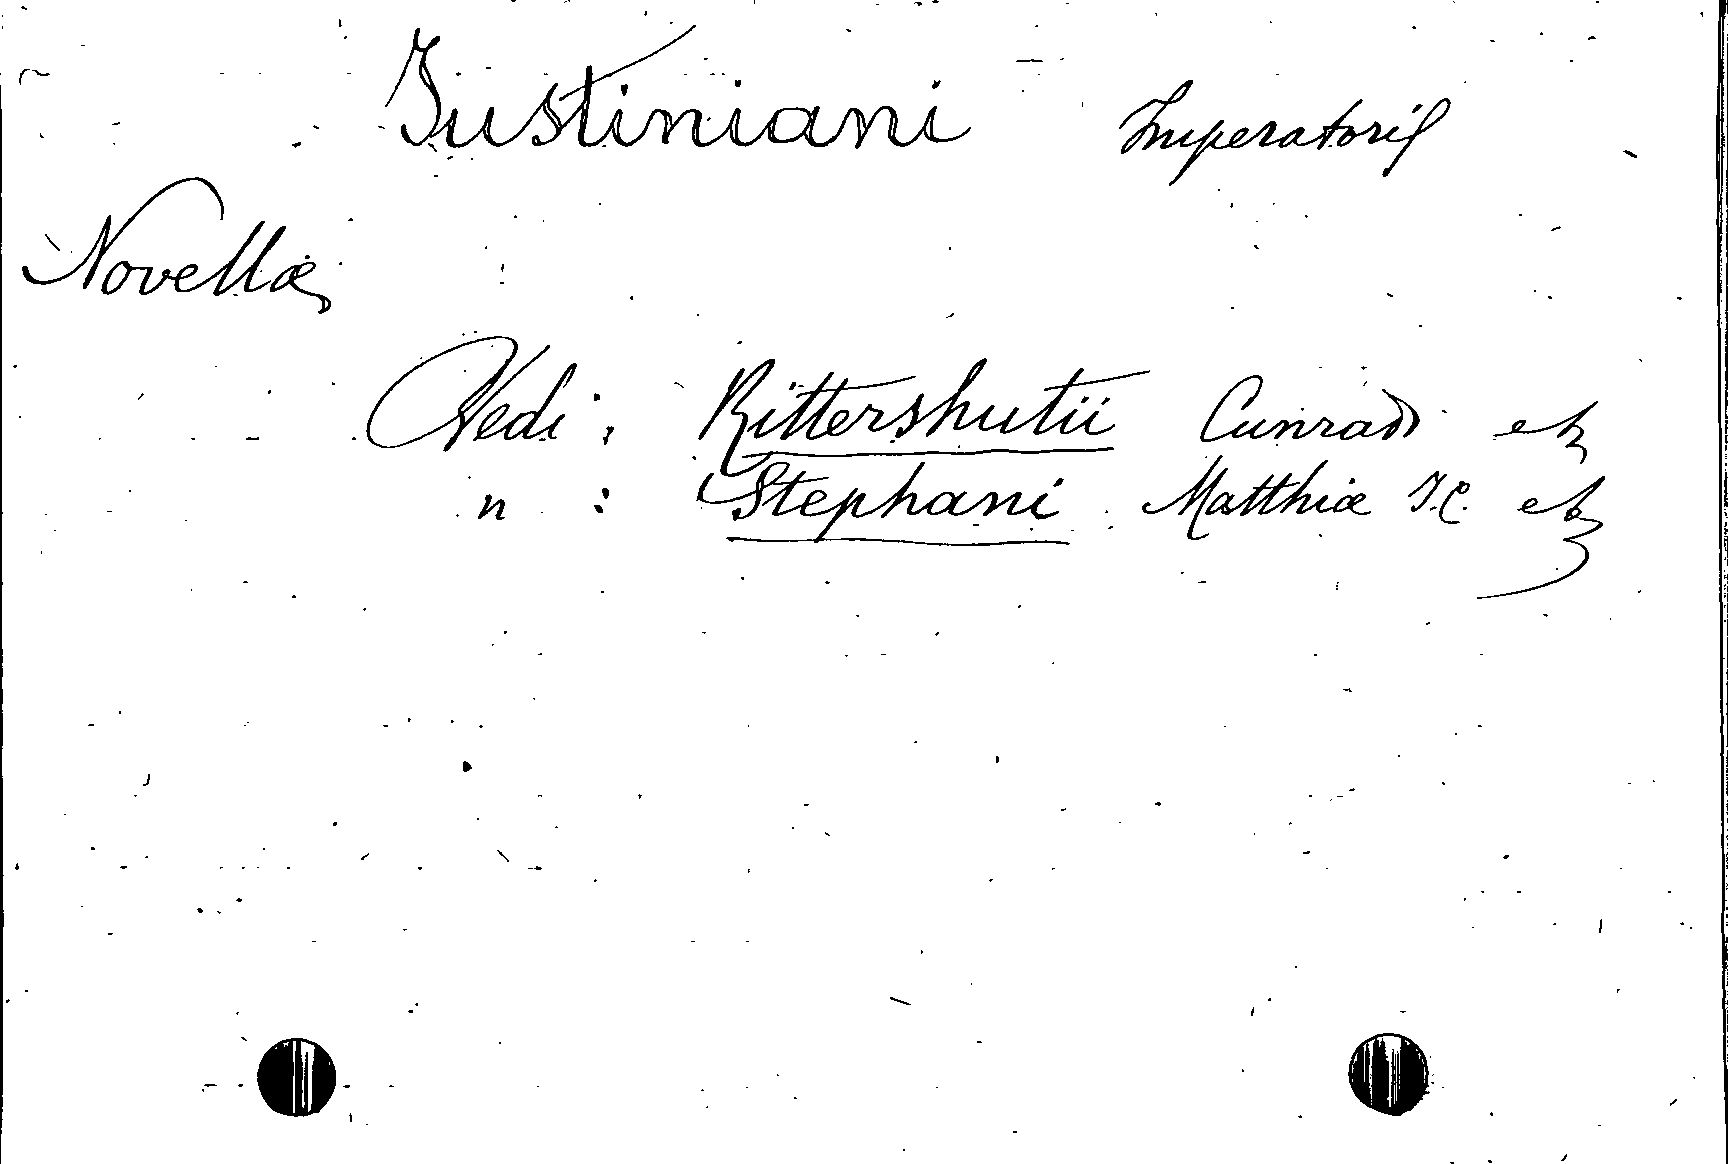 Justiniani Imperatoris
Novellæ
Vedi: Rittershutii Cunradi etz
" : Stephani Matthiæ I.C. etz